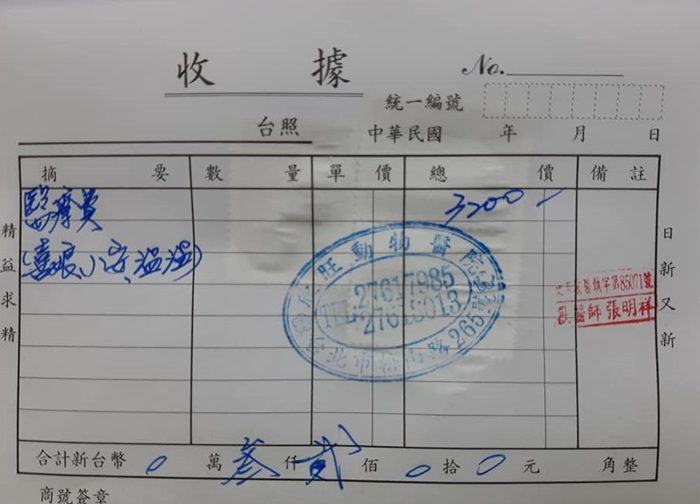 收據
No.
統一編號
台照 中華民國 年 月 日
摘要 數量 單價 總價 備註
醫療費 3200-
(喜浪、小安、溫溫)
精益求精
日新又新
旺動物醫院
TEL:27617985
27616013
台北市 路265號
字第85071號
獸醫師 張明祥
合計新台幣 0 萬 叁 仟 貳 佰 0 拾 0 元 角整
商號簽章